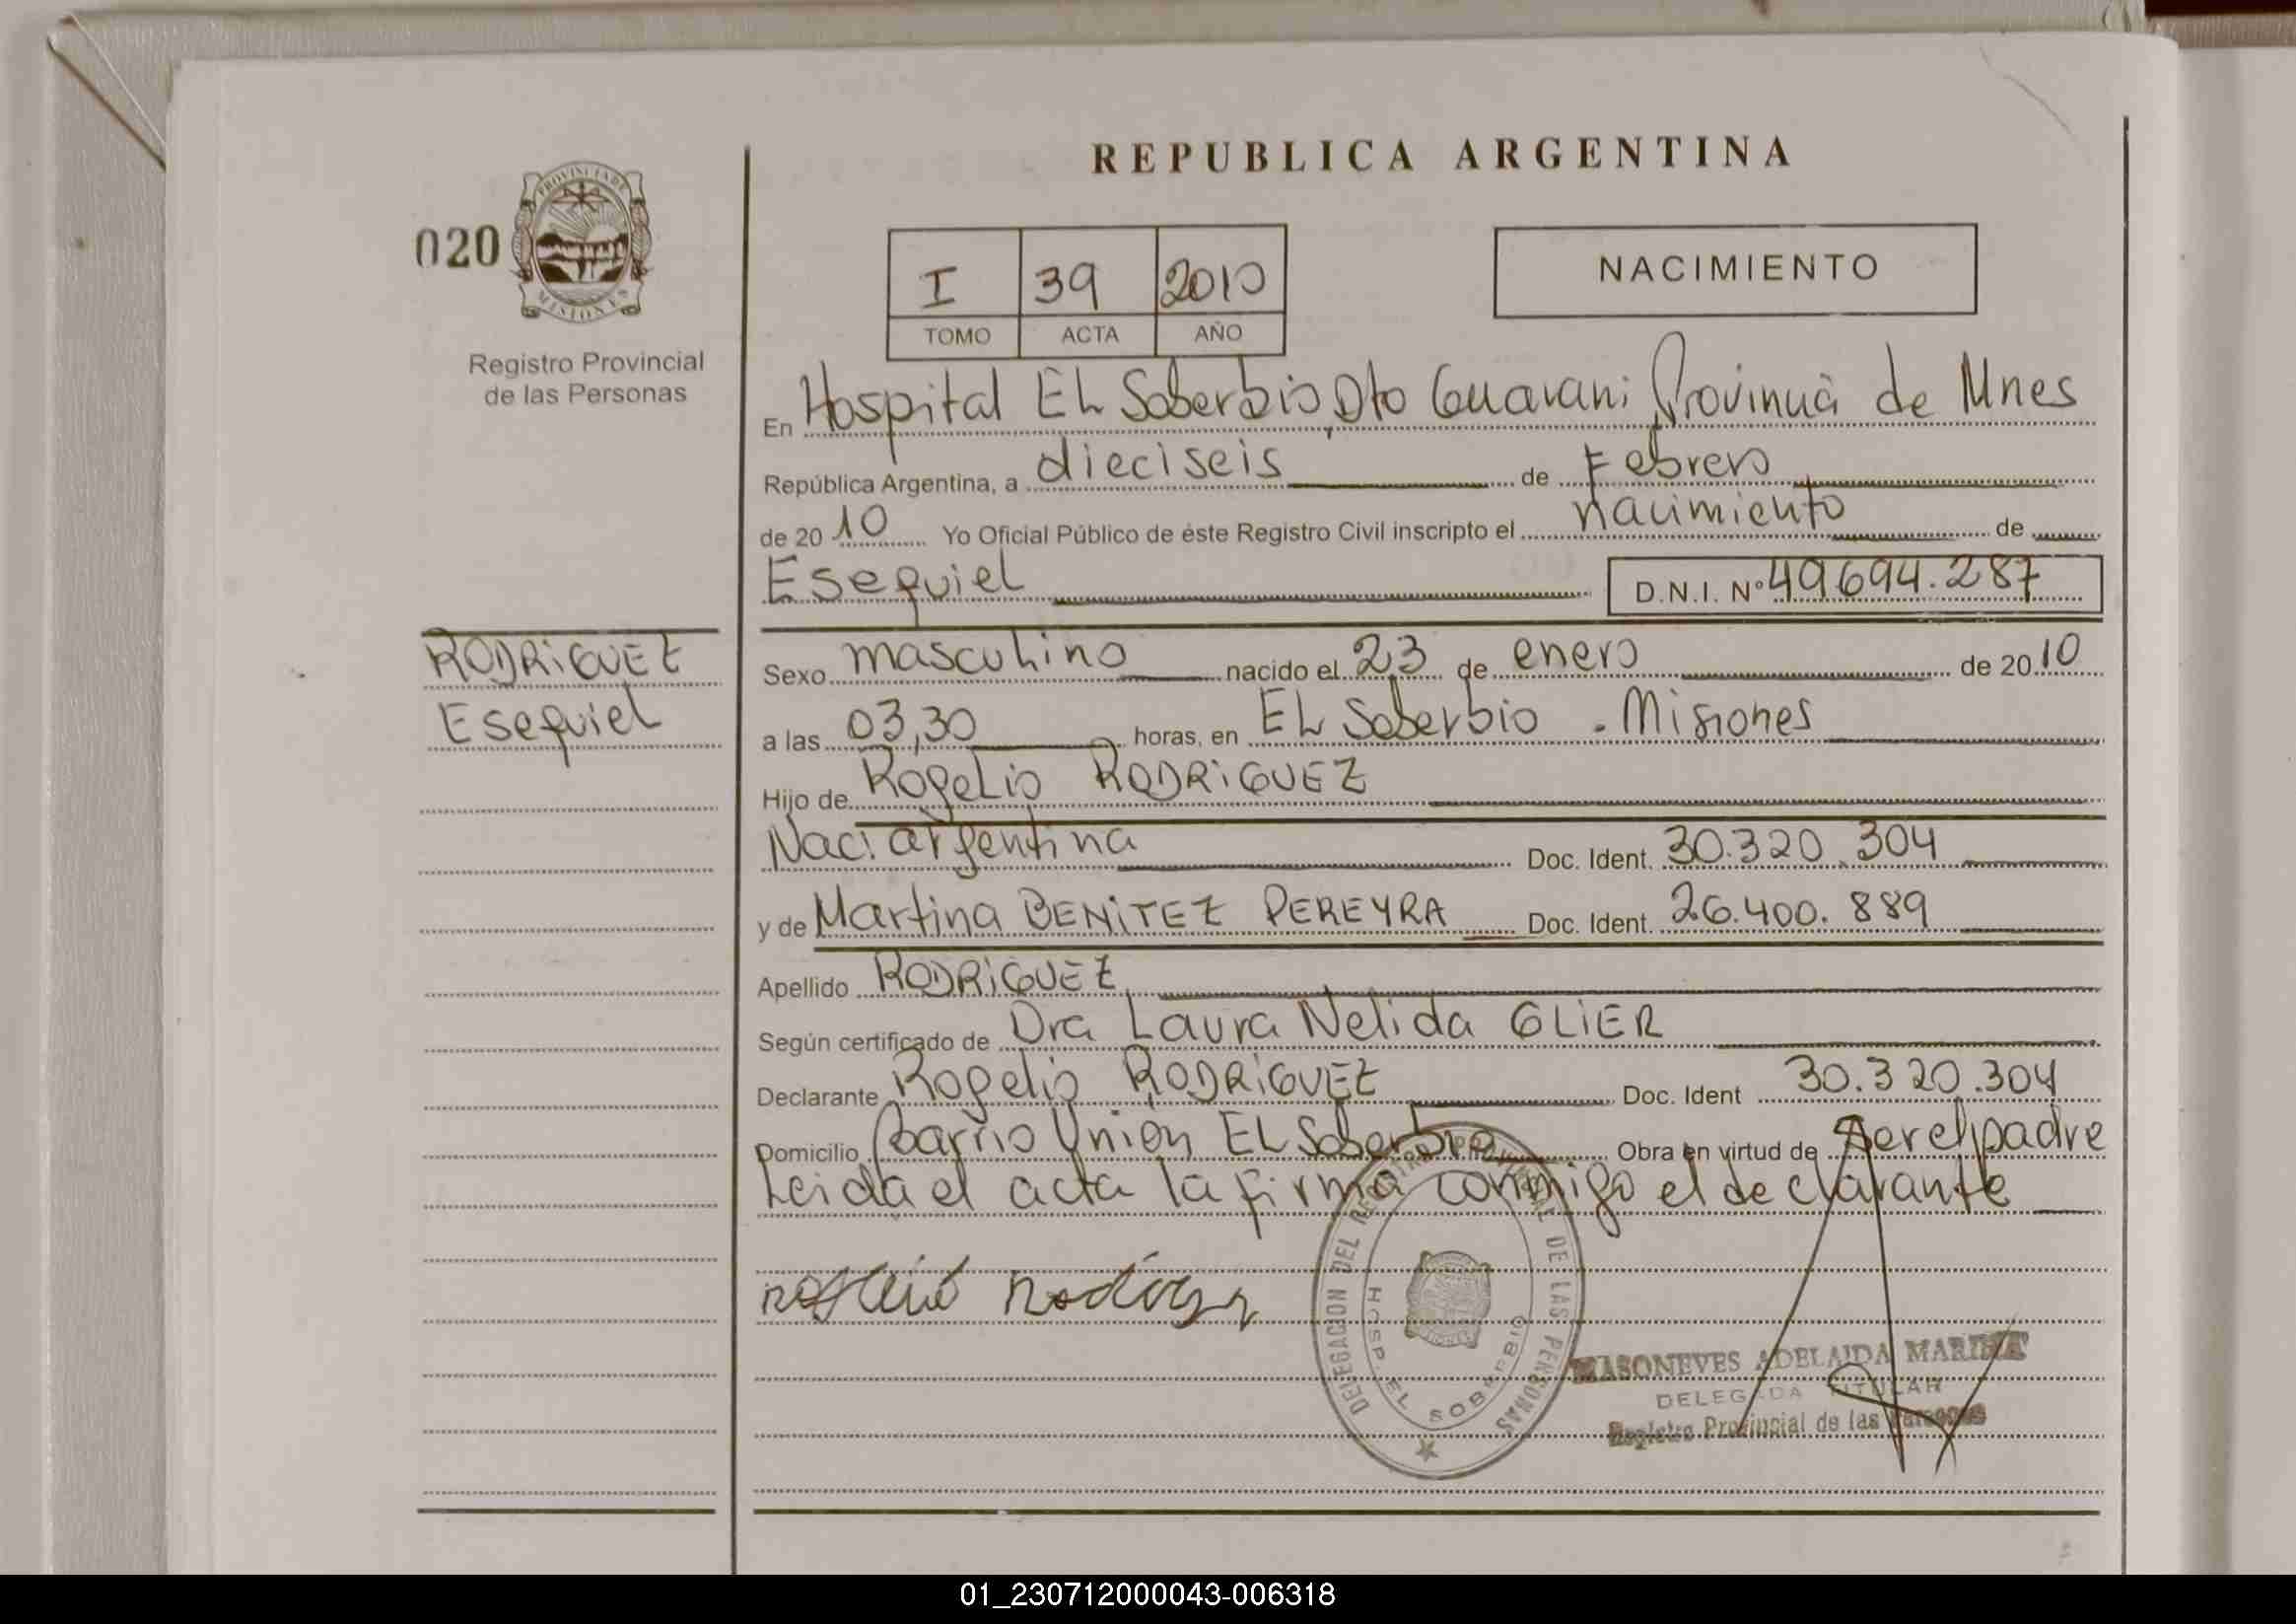 REPUBLICA ARGENTINA
020
PROVINCIA DE
MISIONES
Registro Provincial
de las Personas
I 39 2010
TOMO ACTA AÑO
NACIMIENTO
En Hospital EL Soberbio, Dto Guarani Provincia de Mnes
República Argentina, a dieciseis de Febrero
de 2010 Yo Oficial Público de éste Registro Civil inscripto el nacimiento de
Esequiel D.N.I. Nº 49694.287
RODRIGUEZ
Esequiel
Sexo masculino nacido el 23 de enero de 2010
a las 03,30 horas, en EL Soberbio - Misiones
Hijo de Rogelio RODRIGUEZ
Nac: argentina Doc. Ident. 30.320.304
y de Martina BENITEZ PEREYRA Doc. Ident. 26.400.889
Apellido RODRIGUEZ
Según certificado de Dra Laura Nelida GLIER
Declarante Rogelio RODRIGUEZ Doc. Ident 30.320.304
Domicilio Barrio Unión EL Soberbio Obra en virtud de ser el padre
Leida el acta la firma conmigo el declarante
DELEGACION DEL REGISTRO PROVINCIAL DE LAS PERSONAS
HOSP. EL SOBERBIO
MASONEVES ADELAIDA MARINA
DELEGADA TITULAR
Registro Provincial de las Personas
01_230712000043-006318